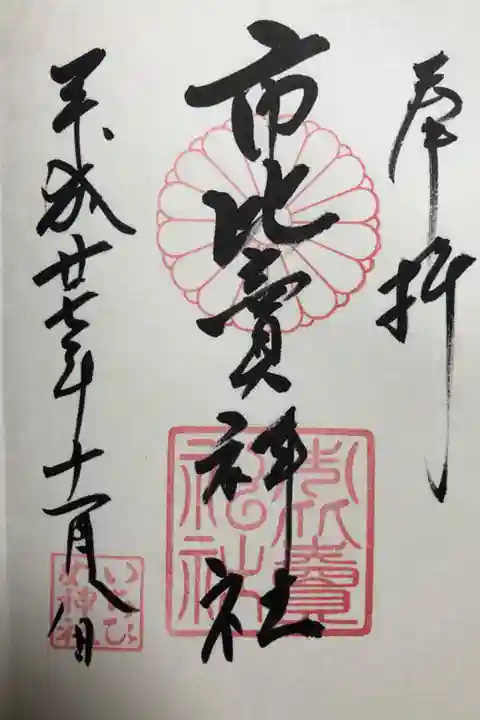 奉拝
市比賣神社
平成廿七年十一月八日
市比賣
神社
いちひ
め神社